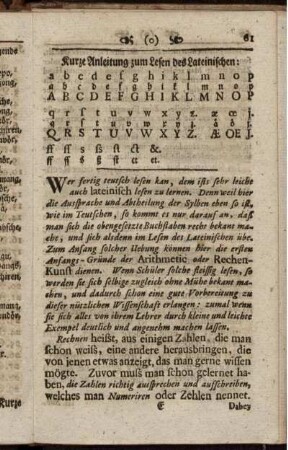 (o) 61
Kurze Anleitung zum Lesen des Lateinischen:
a b c d e f g h i k l m n o p
a b c d e f g h i k l m n o p
A B C D E F G H I K L M N O P
q r s t u v w x y z. æ œ j.
q r s t u v w x y z. ä ö j.
Q. R S T U V W X Y Z. Æ Œ J.
ff ſſ ß ſt ct &.
ff ſſ ß ſt ct et.
Wer fertig teutsch lesen kan, dem ists sehr leicht
auch lateinisch lesen zu lernen. Denn weil hier
die Aussprache und Abtheilung der Sylben eben so ist,
wie im Teutschen, so kommt es nur darauf an, daß
man sich die obengesetzte Buchstaben recht bekant ma-
che, und sich alsdenn im Lesen des Lateinischen übe.
Zum Anfang solcher Uebung können hier die ersten
Anfangs-Gründe der Arithmetic oder Rechen-
Kunst dienen. Wenn Schüler solche fleissig lesen, so
werden sie sich selbige zugleich ohne Mühe bekant ma-
chen, und dadurch schon eine gute Vorbereitung zu
dieser nützlichen Wissenschaft erlangen; zumal wenn
sie sich alles von ihrem Lehrer durch kleine und leichte
Exempel deutlich und angenehm machen lassen.
Rechnen heißt, aus einigen Zahlen, die man
schon weiß, eine andere herausbringen, die
von jenen etwas anzeigt, das man gerne wissen
mögte. Zuvor muß man schon gelernet ha-
ben, die Zahlen richtig aussprechen und aufschreiben,
welches man Numeriren oder Zehlen nennet.
E Dabey
Kurze